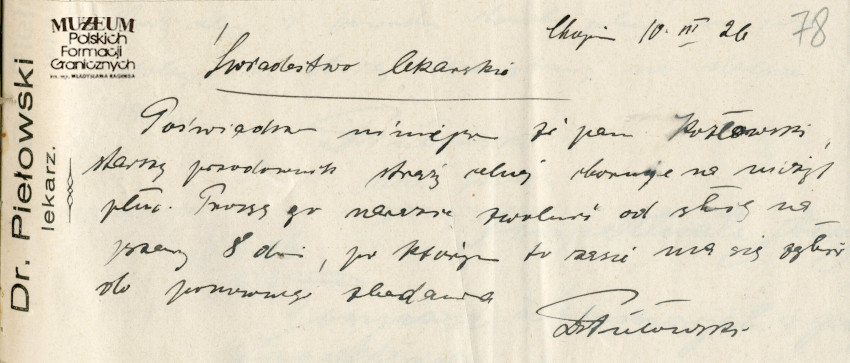 MUZEUM
Polskich
Formacji
Granicznych
im. mjr. WŁADYSŁAWA RAGINISA
Dr. Piełowski
lekarz.
10. III 26
78
Świadectwo lekarskie
Poświadczam niniejszem że pan Kozłowski
starszy przodownik straży celnej choruje na nieżyt
płuc. Proszę go narazie zwolnić od służby na
przeciąg 8 dni, po którym to czasie ma się zgłosić
do ponownego zbadania
Dr Piełowski